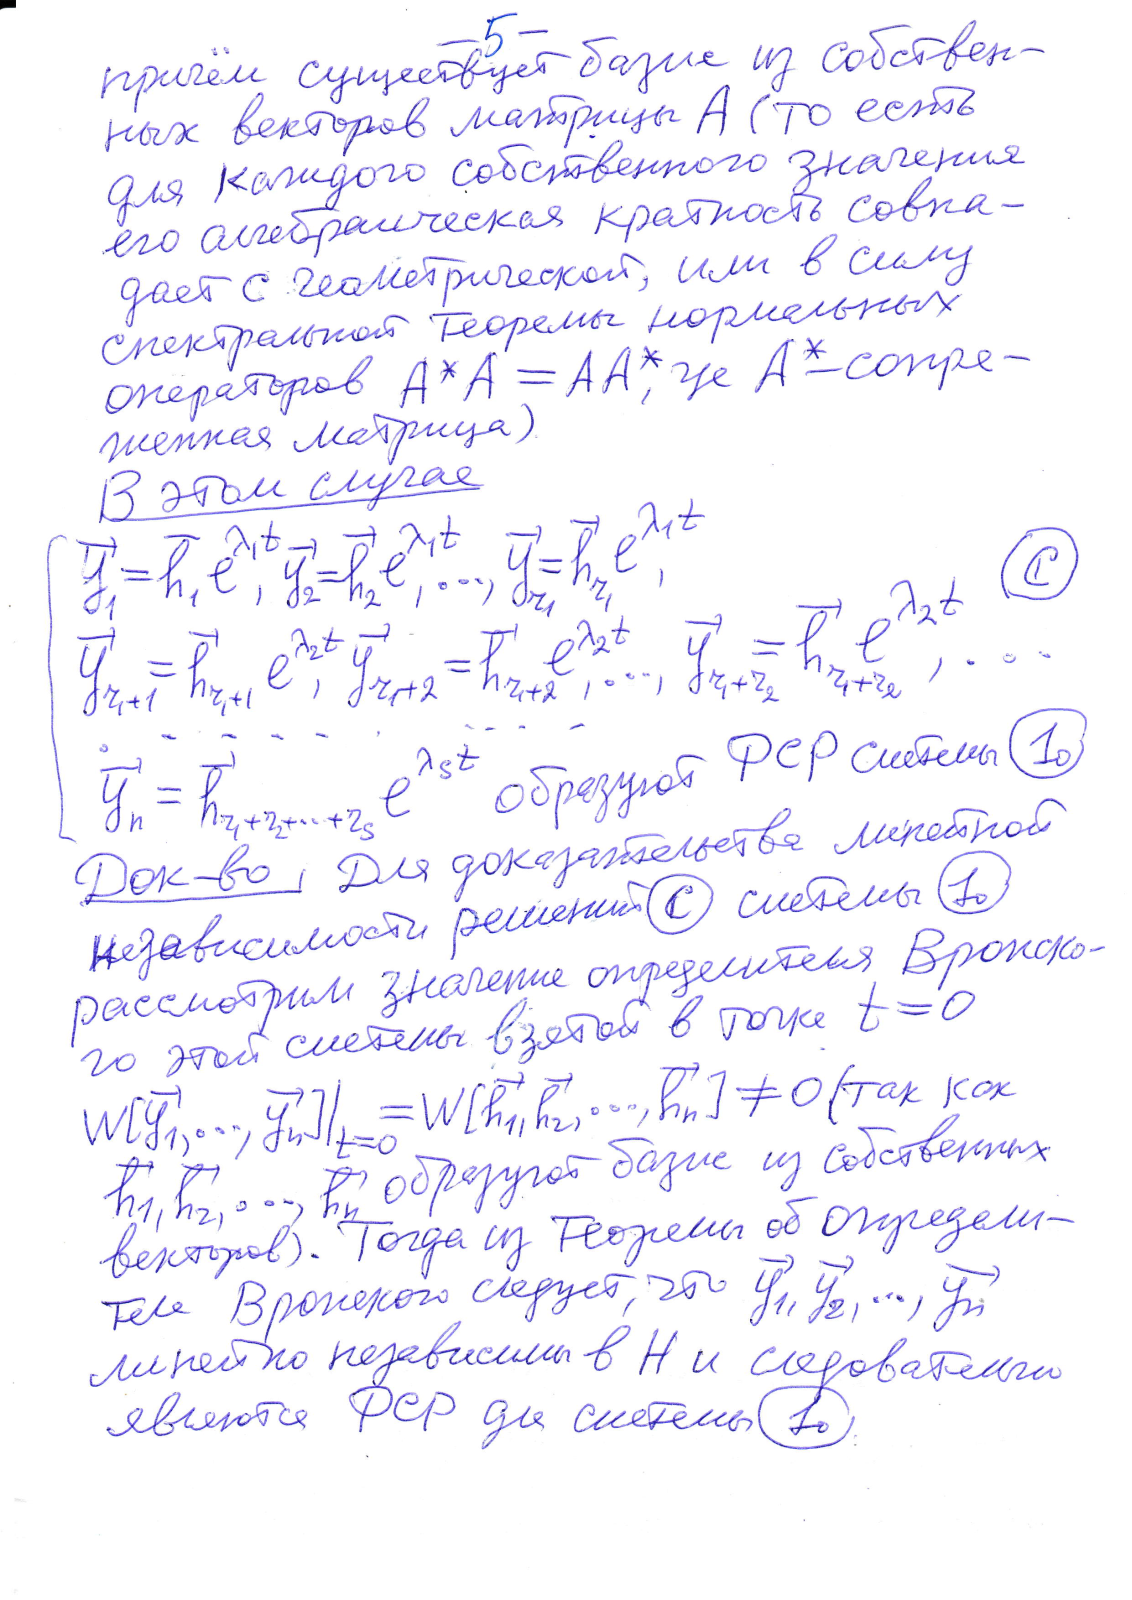 – 5 –
причём существует базис из собствен-
ных векторов матрицы A (то есть
для каждого собственного значения
его алгебраическая кратность совпа-
дает с геометрической, или в силу
спектральной теоремы нормальных
операторов A*A = AA*, где A* – сопря-
женная матрица)
В этом случае
y⃗₁ = h⃗₁ e^{λ₁t}, y⃗₂ = h⃗₂ e^{λ₁t}, ..., y⃗_{r₁} = h⃗_{r₁} e^{λ₁t}, (C)
y⃗_{r₁+1} = h⃗_{r₁+1} e^{λ₂t}, y⃗_{r₁+2} = h⃗_{r₁+2} e^{λ₂t}, ..., y⃗_{r₁+r₂} = h⃗_{r₁+r₂} e^{λ₂t}, ...
. - - - - - - - - -
y⃗ₙ = h⃗_{r₁+r₂+...+r_s} e^{λ_s t} образуют ФСР системы (1₀)
Док-во, Для доказательства линейной
независимости решений (C) системы (1₀)
рассмотрим значение определителя Вронско-
го этой системы взятой в точке t = 0
W[y⃗₁, ..., y⃗ₙ]|_{t=0} = W[h⃗₁, h⃗₂, ..., h⃗ₙ] ≠ 0 (так как
h⃗₁, h⃗₂, ..., h⃗ₙ образуют базис из собственных
векторов). Тогда из Теоремы об определи-
теле Вронского следует, что y⃗₁, y⃗₂, ..., y⃗ₙ
линейно независимы в H и следовательно
являются ФСР для системы (1₀).